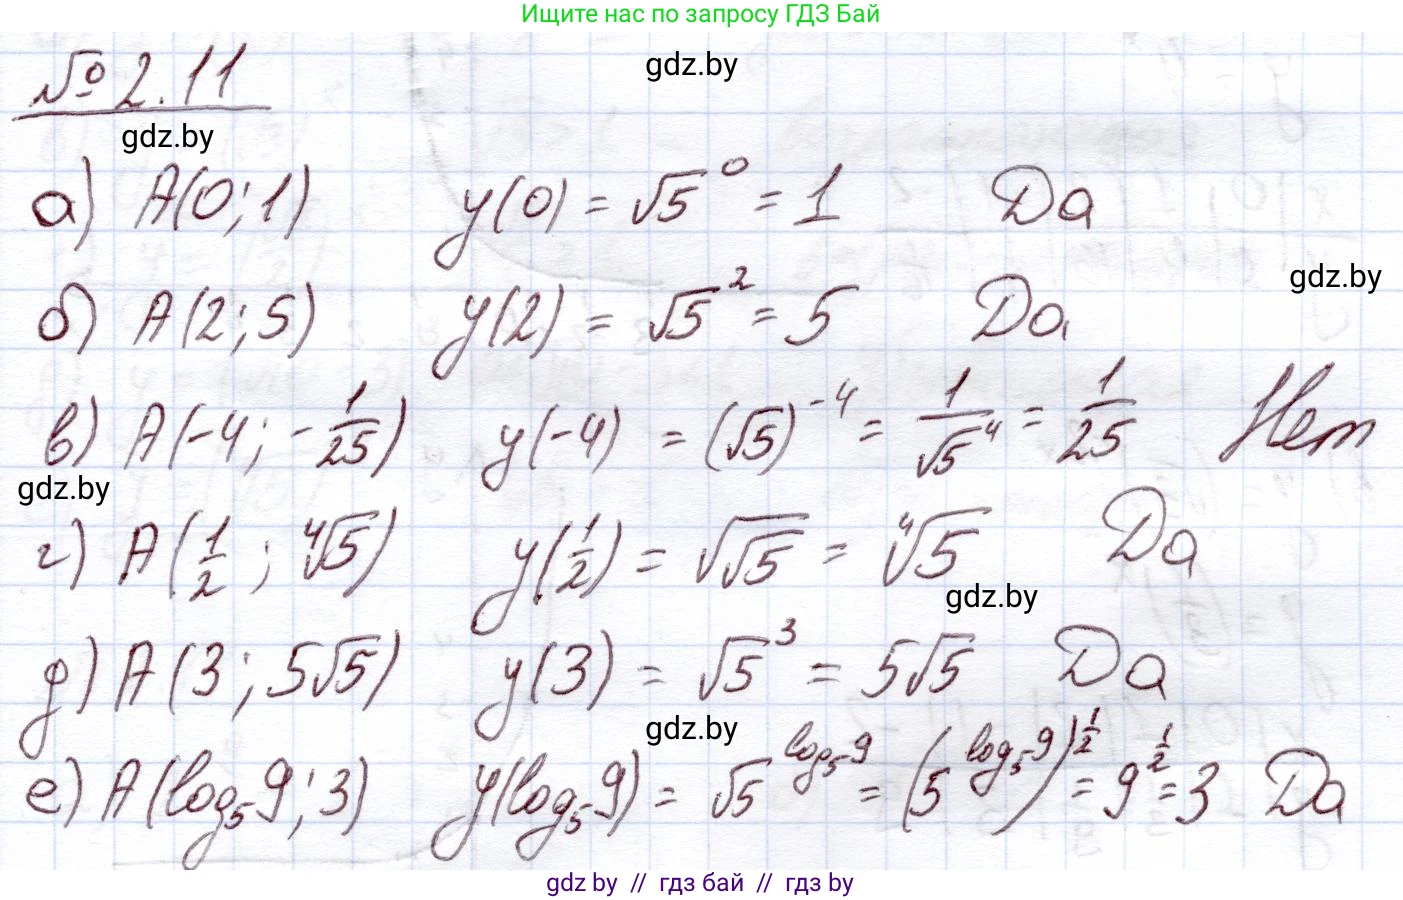 Ищите нас по запросу ГДЗ Бай
gdz.by
№ 2.11
gdz.by
а) A(0; 1) y(0) = √5^0 = 1 Да
gdz.by
б) A(2; 5) y(2) = √5^2 = 5 Да
в) A(-4; -1/25) y(-4) = (√5)^-4 = 1/√5^4 = 1/25 Нет
gdz.by
г) A(1/2; ∜5) y(1/2) = √√5 = ∜5 Да
gdz.by
д) A(3; 5√5) y(3) = √5^3 = 5√5 Да
gdz.by
е) A(log₅9; 3) y(log₅9) = √5^log₅9 = (5^log₅9)^1/2 = 9^1/2 = 3 Да
gdz by // гдз бай // гдз by